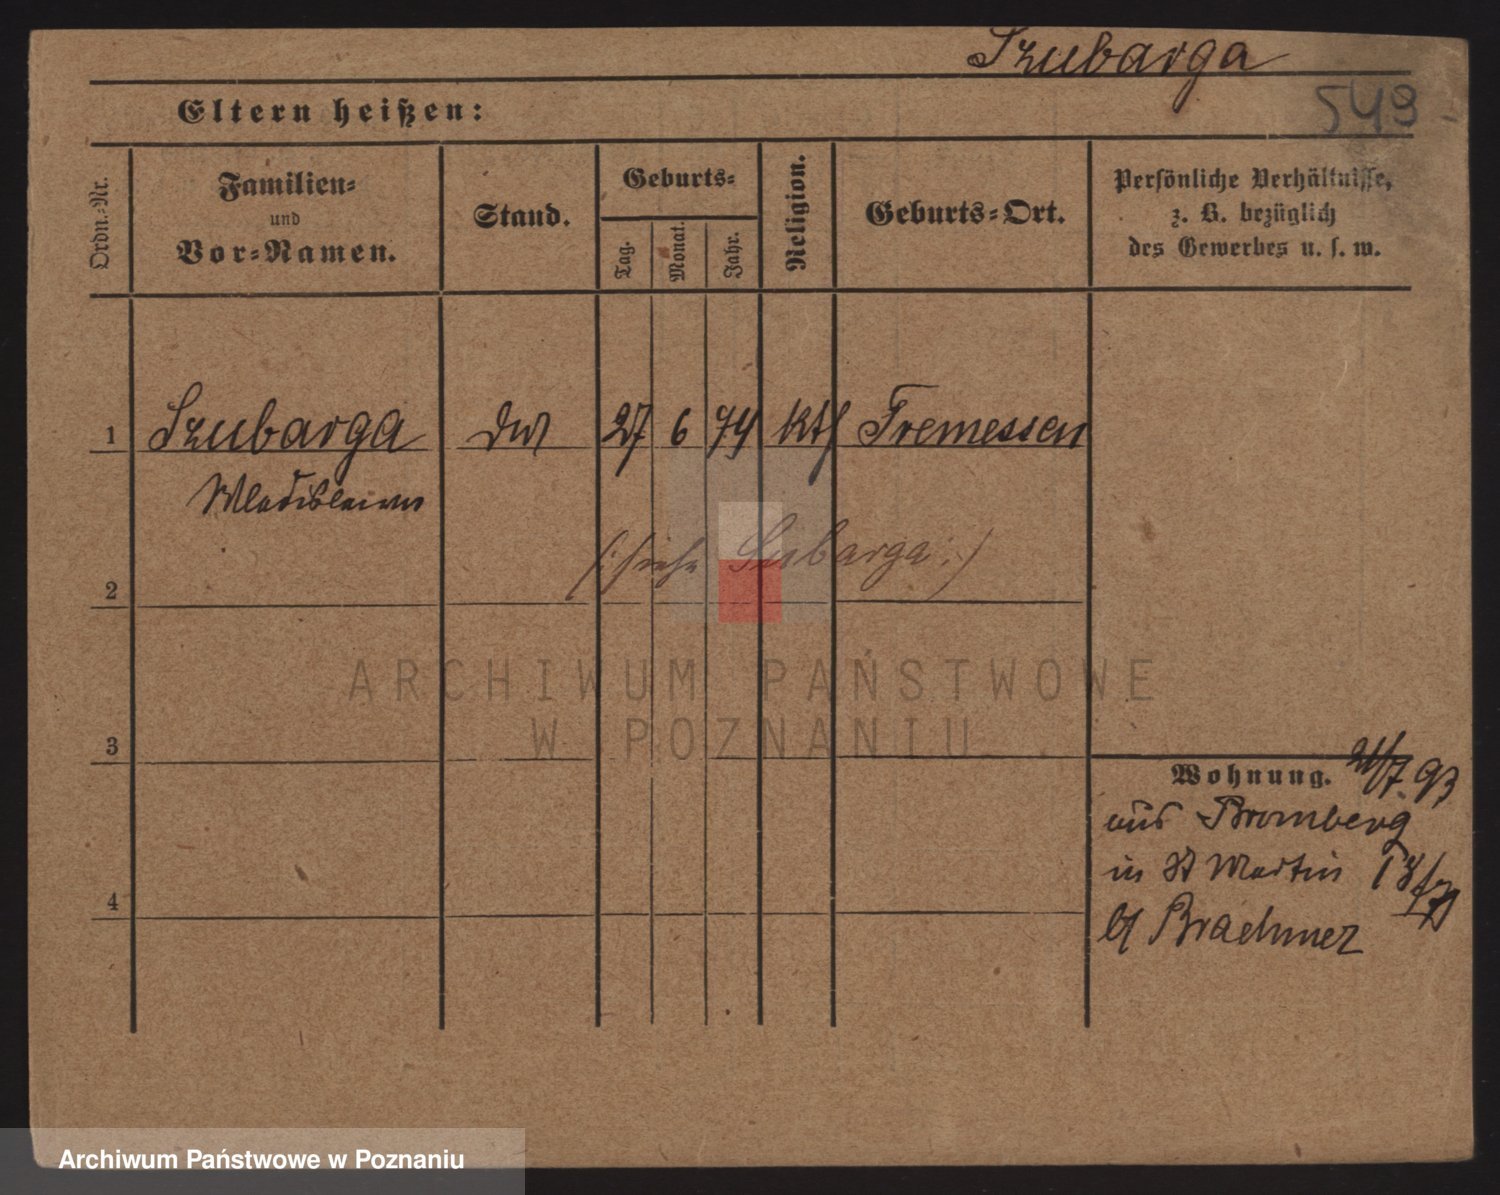 Szubarga
549
Eltern heißen:
Ordn.-Nr.
Familien-
und
Vor-Namen.
Stand.
Geburts-
Tag.
Monat.
Jahr.
Religion.
Geburts-Ort.
Persönliche Verhältnisse,
z. B. bezüglich
des Gewerbes u. s. w.
1 Szubarga 27 6 74 kth Tremessen
Wladislaus
(: siehe Subarga :)
2
ARCHIWUM PAŃSTWOWE
W POZNANIU
3
Wohnung. 21/7. 93
aus Bromberg
in St Martin
bei Brachmer
4
Archiwum Państwowe w Poznaniu